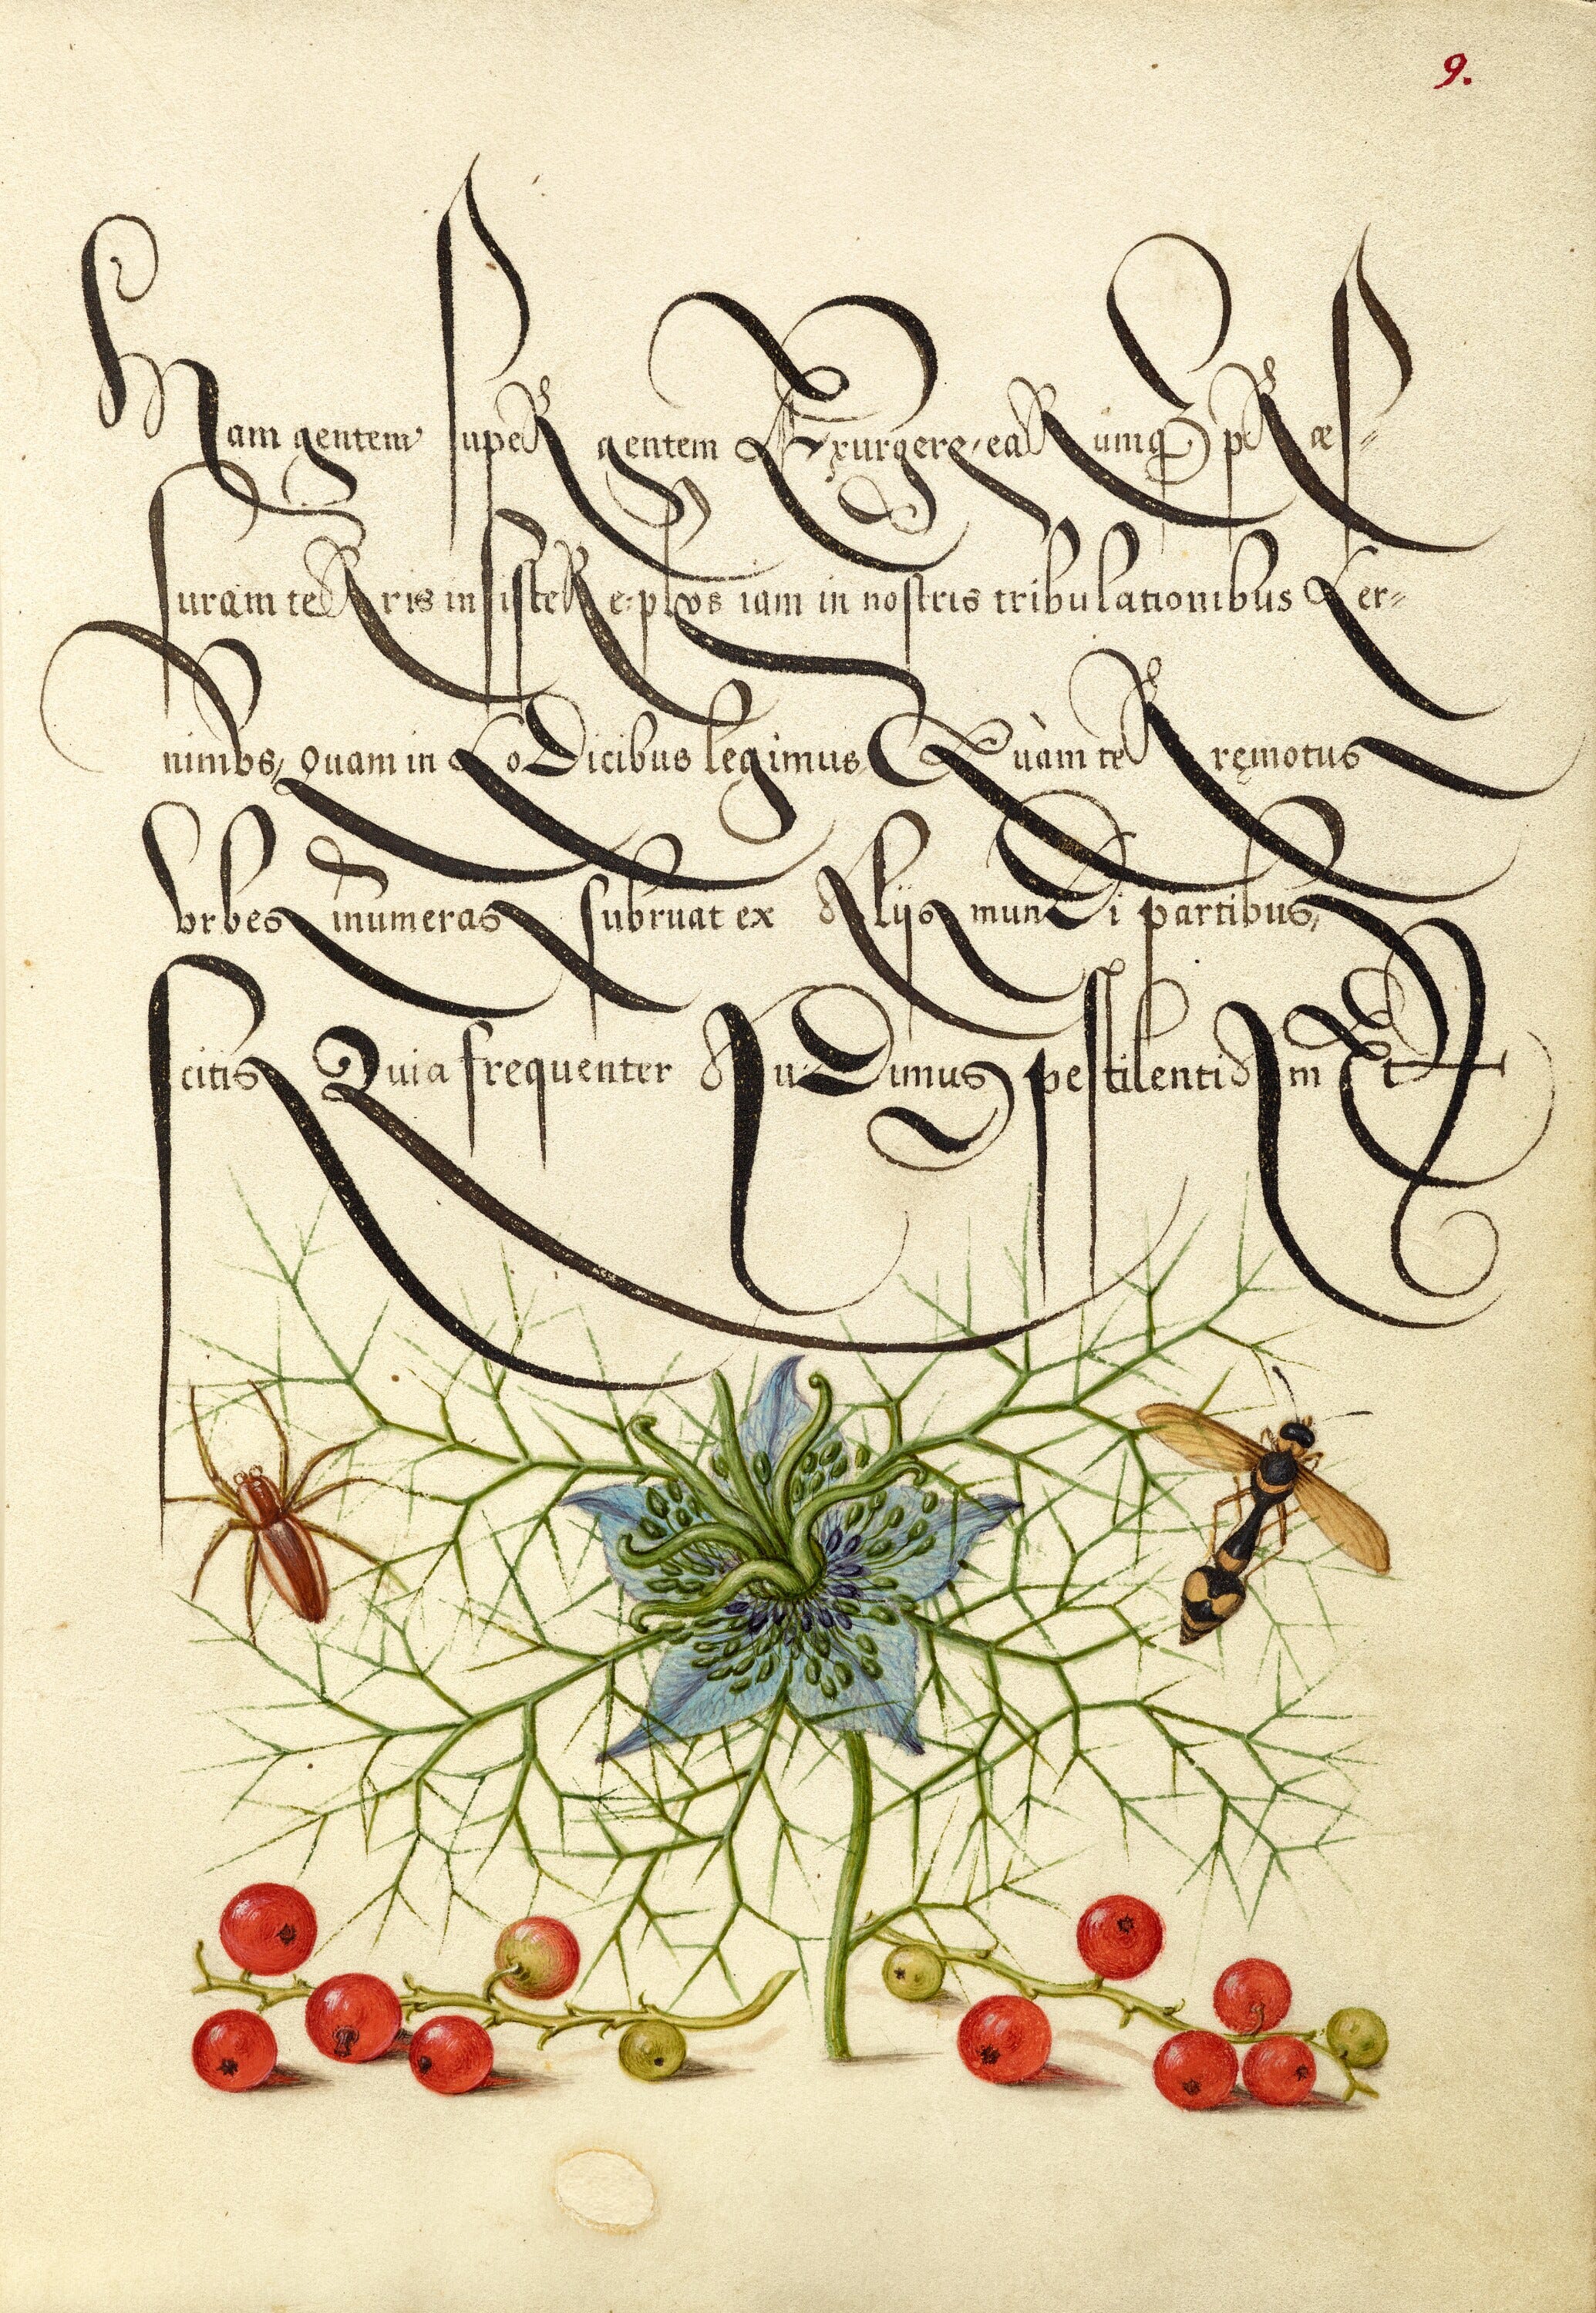 9.
Nam gentem super gentem Exurgere, earumq3 præs=
suram terris insistere: plvs iam in nostris tribulationibus Cer=
nimvs, Quam in CoDicibus legimus. Quàm terręmotus
Vrbes inumeras subruat ex Alijs munDi partibus,
scitis Quia frequenter AuDimus pestilentiAm Et